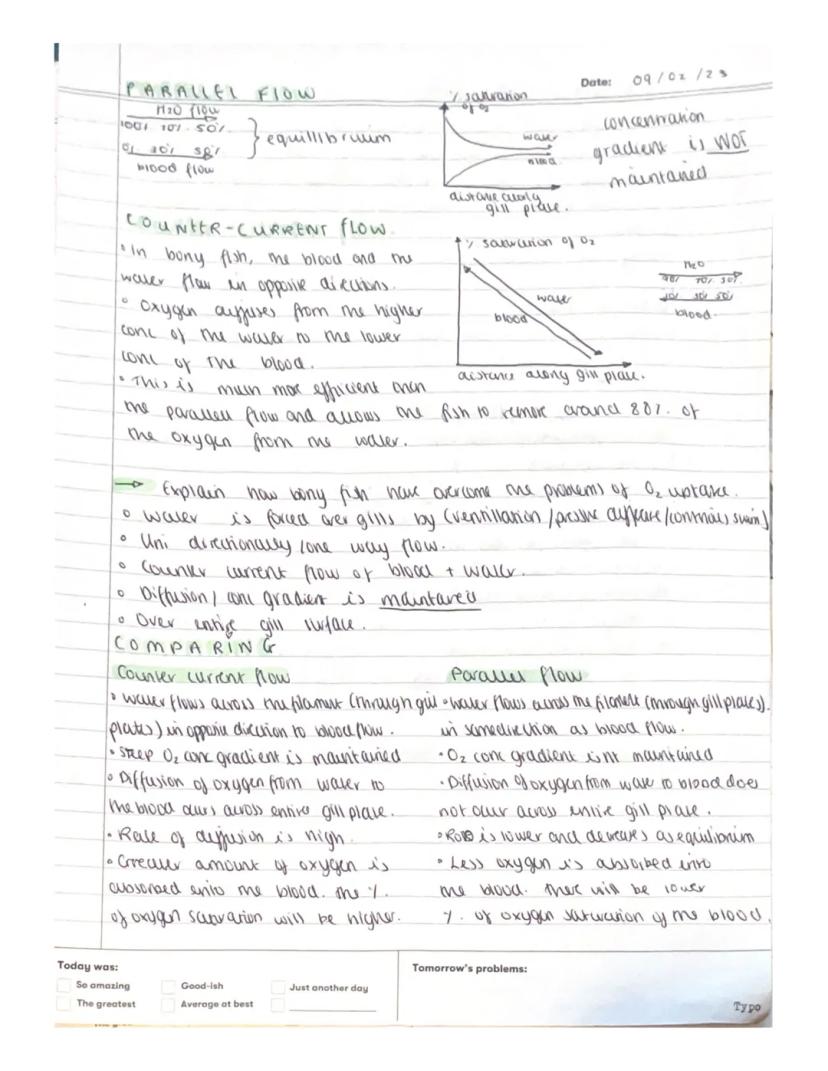 Date: 09/02/23
PARALLEL FLOW
H2O flow
100% 70% 50%
0% 30% 50%
blood flow
} equillibruium
% saturation of O2
water
blood
distance along gill plate.
concentration gradient is NOT maintained
COUNTER-CURRENT flow.
• In bony fish, the blood and the
water flow in opposite directions.
• Oxygen diffuses from the higher
conc of the water to the lower
conc of the blood.
• This is much more efficient than
the parallel flow and allows the fish to remove around 80% of
the oxygen from the water.
% saturation of O2
water
blood
distance along gill plate.
H2O
90% 70% 30%
50%
blood.
→ Explain how bony fish have overcome the problems of O2 uptake.
• Water is forced over gills by (ventillation / pressure / swim)
• Uni directionally / one way flow.
• Counter current flow of blood + water.
• Diffusion / conc gradient is maintained
• Over entire gill surface.
COMPARING
Counter current flow
• Water flows across the filament (through gill
plates) in opposite direction to blood flow.
• Steep O2 conc gradient is maintained
• Diffusion of oxygen from water to
the blood occurs across entire gill plate.
• Rate of diffusion is high.
• Greater amount of oxygen is
absorbed into the blood. The %
of oxygen saturation will be higher.
Parallel flow
• Water flows across the filament (through gill plates).
in same direction as blood flow.
• O2 conc gradient isnt maintained
• Diffusion of oxygen from water to blood does
not occur across entire gill plate.
• Rate is lower and decreases as equilibrium
• Less oxygen is absorbed into
the blood. There will be lower
% of oxygen saturation of the blood.
Today was:
So amazing
Good-ish
Just another day
The greatest
Average at best
Tomorrow's problems:
Typo